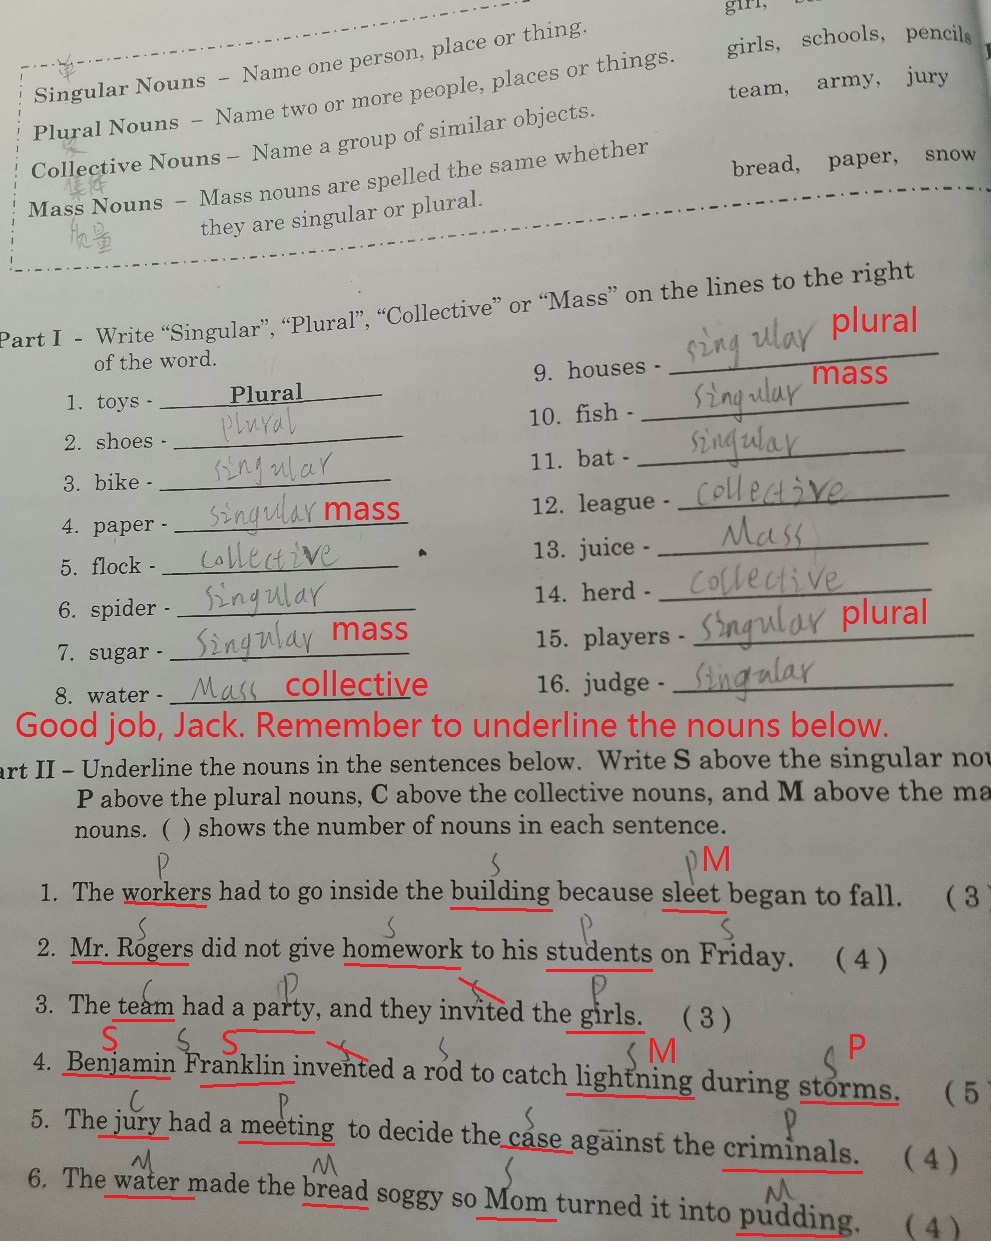 girl,
Singular Nouns – Name one person, place or thing.
girls, schools, pencils
Plural Nouns – Name two or more people, places or things.
team, army, jury
Collective Nouns – Name a group of similar objects.
集体
Mass Nouns – Mass nouns are spelled the same whether
bread, paper, snow
质量
they are singular or plural.
Part I - Write “Singular”, “Plural”, “Collective” or “Mass” on the lines to the right
of the word.
1. toys - Plural
2. shoes - plural
3. bike - singular
4. paper - singular mass
5. flock - collective
6. spider - singular
7. sugar - singular mass
8. water - Mass collective
9. houses - singular plural
10. fish - singular mass
11. bat - singular
12. league - collective
13. juice - Mass
14. herd - collective
15. players - singular plural
16. judge - singular
Good job, Jack. Remember to underline the nouns below.
art II – Underline the nouns in the sentences below. Write S above the singular nou
P above the plural nouns, C above the collective nouns, and M above the ma
nouns. ( ) shows the number of nouns in each sentence.
P S P M
1. The workers had to go inside the building because sleet began to fall. (3)
S S P S
2. Mr. Rogers did not give homework to his students on Friday. (4)
C P S P
3. The team had a party, and they invited the girls. (3)
S S S S S S M S P
4. Benjamin Franklin invented a rod to catch lightning during storms. (5
C P S P
5. The jury had a meeting to decide the case against the criminals. (4)
M M S M
6. The water made the bread soggy so Mom turned it into pudding. (4)